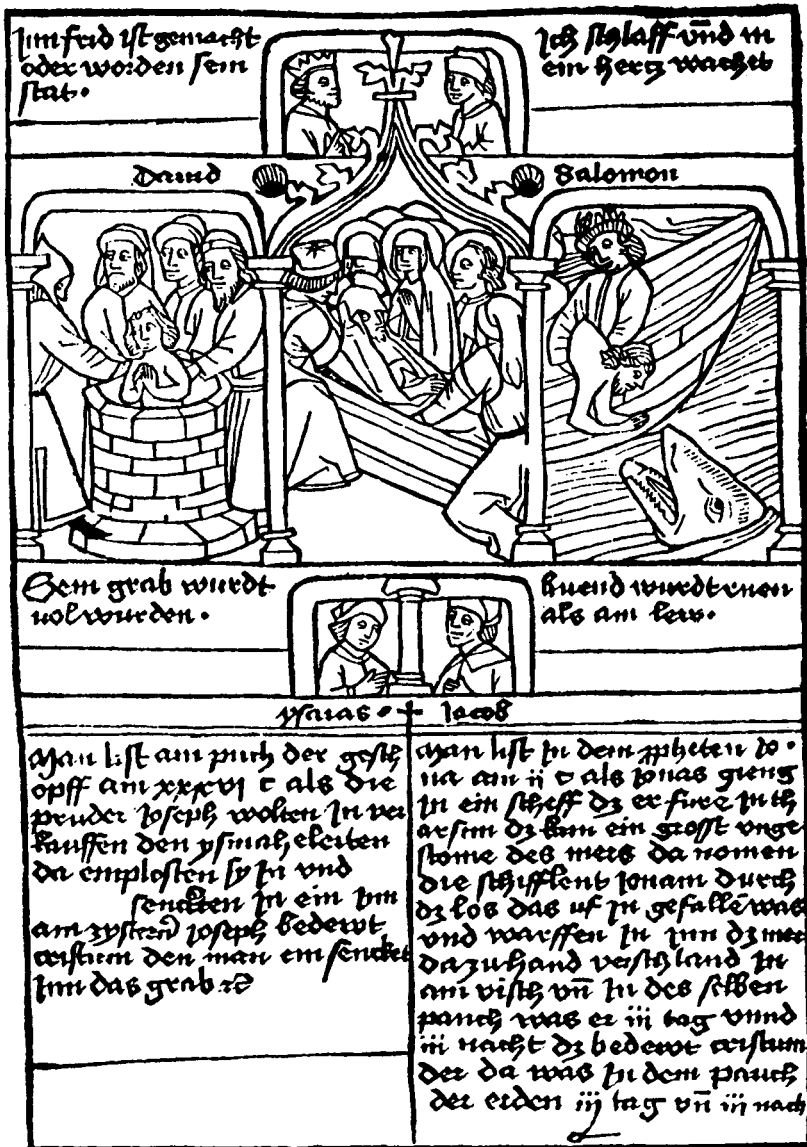 Jnn frid ist gemacht
oder worden sein
stat.
Jch schlaff vnd in
ein hertz wachet
Dauid
Salomon
Sein grab wurdt
uol wurden.
als am lew.
ysaias.
Jacob
Man list am puch der gesch
opff am xxxvi c als die
pruder Joseph wolten Jn ver
kauffen den ysmaheleiten
da emplosten sy Jn vnd
senckten Jn ein Jnn
am zystern Joseph bedewt
cristum den man ein sencket
Jnn das grab
Man list Jn dem ppheten Jo.
na am ii c als Jonas gieng
Jn ein scheff dz er fure Jn th
arsim dz kam ein grosst vnge
stome des mers da nomen
die schifflent Jonam durch
dz los das uf Jn gefallē was
vnd warffen Jn Jnn dz mer
dazuhand verschland Jn
am visch vn̄ Jn des selben
pauch was er iii tag vnnd
iii nacht dz bedewt cristum
der da was Jn dem pauch
der erden iij tag vn̄ iii nach